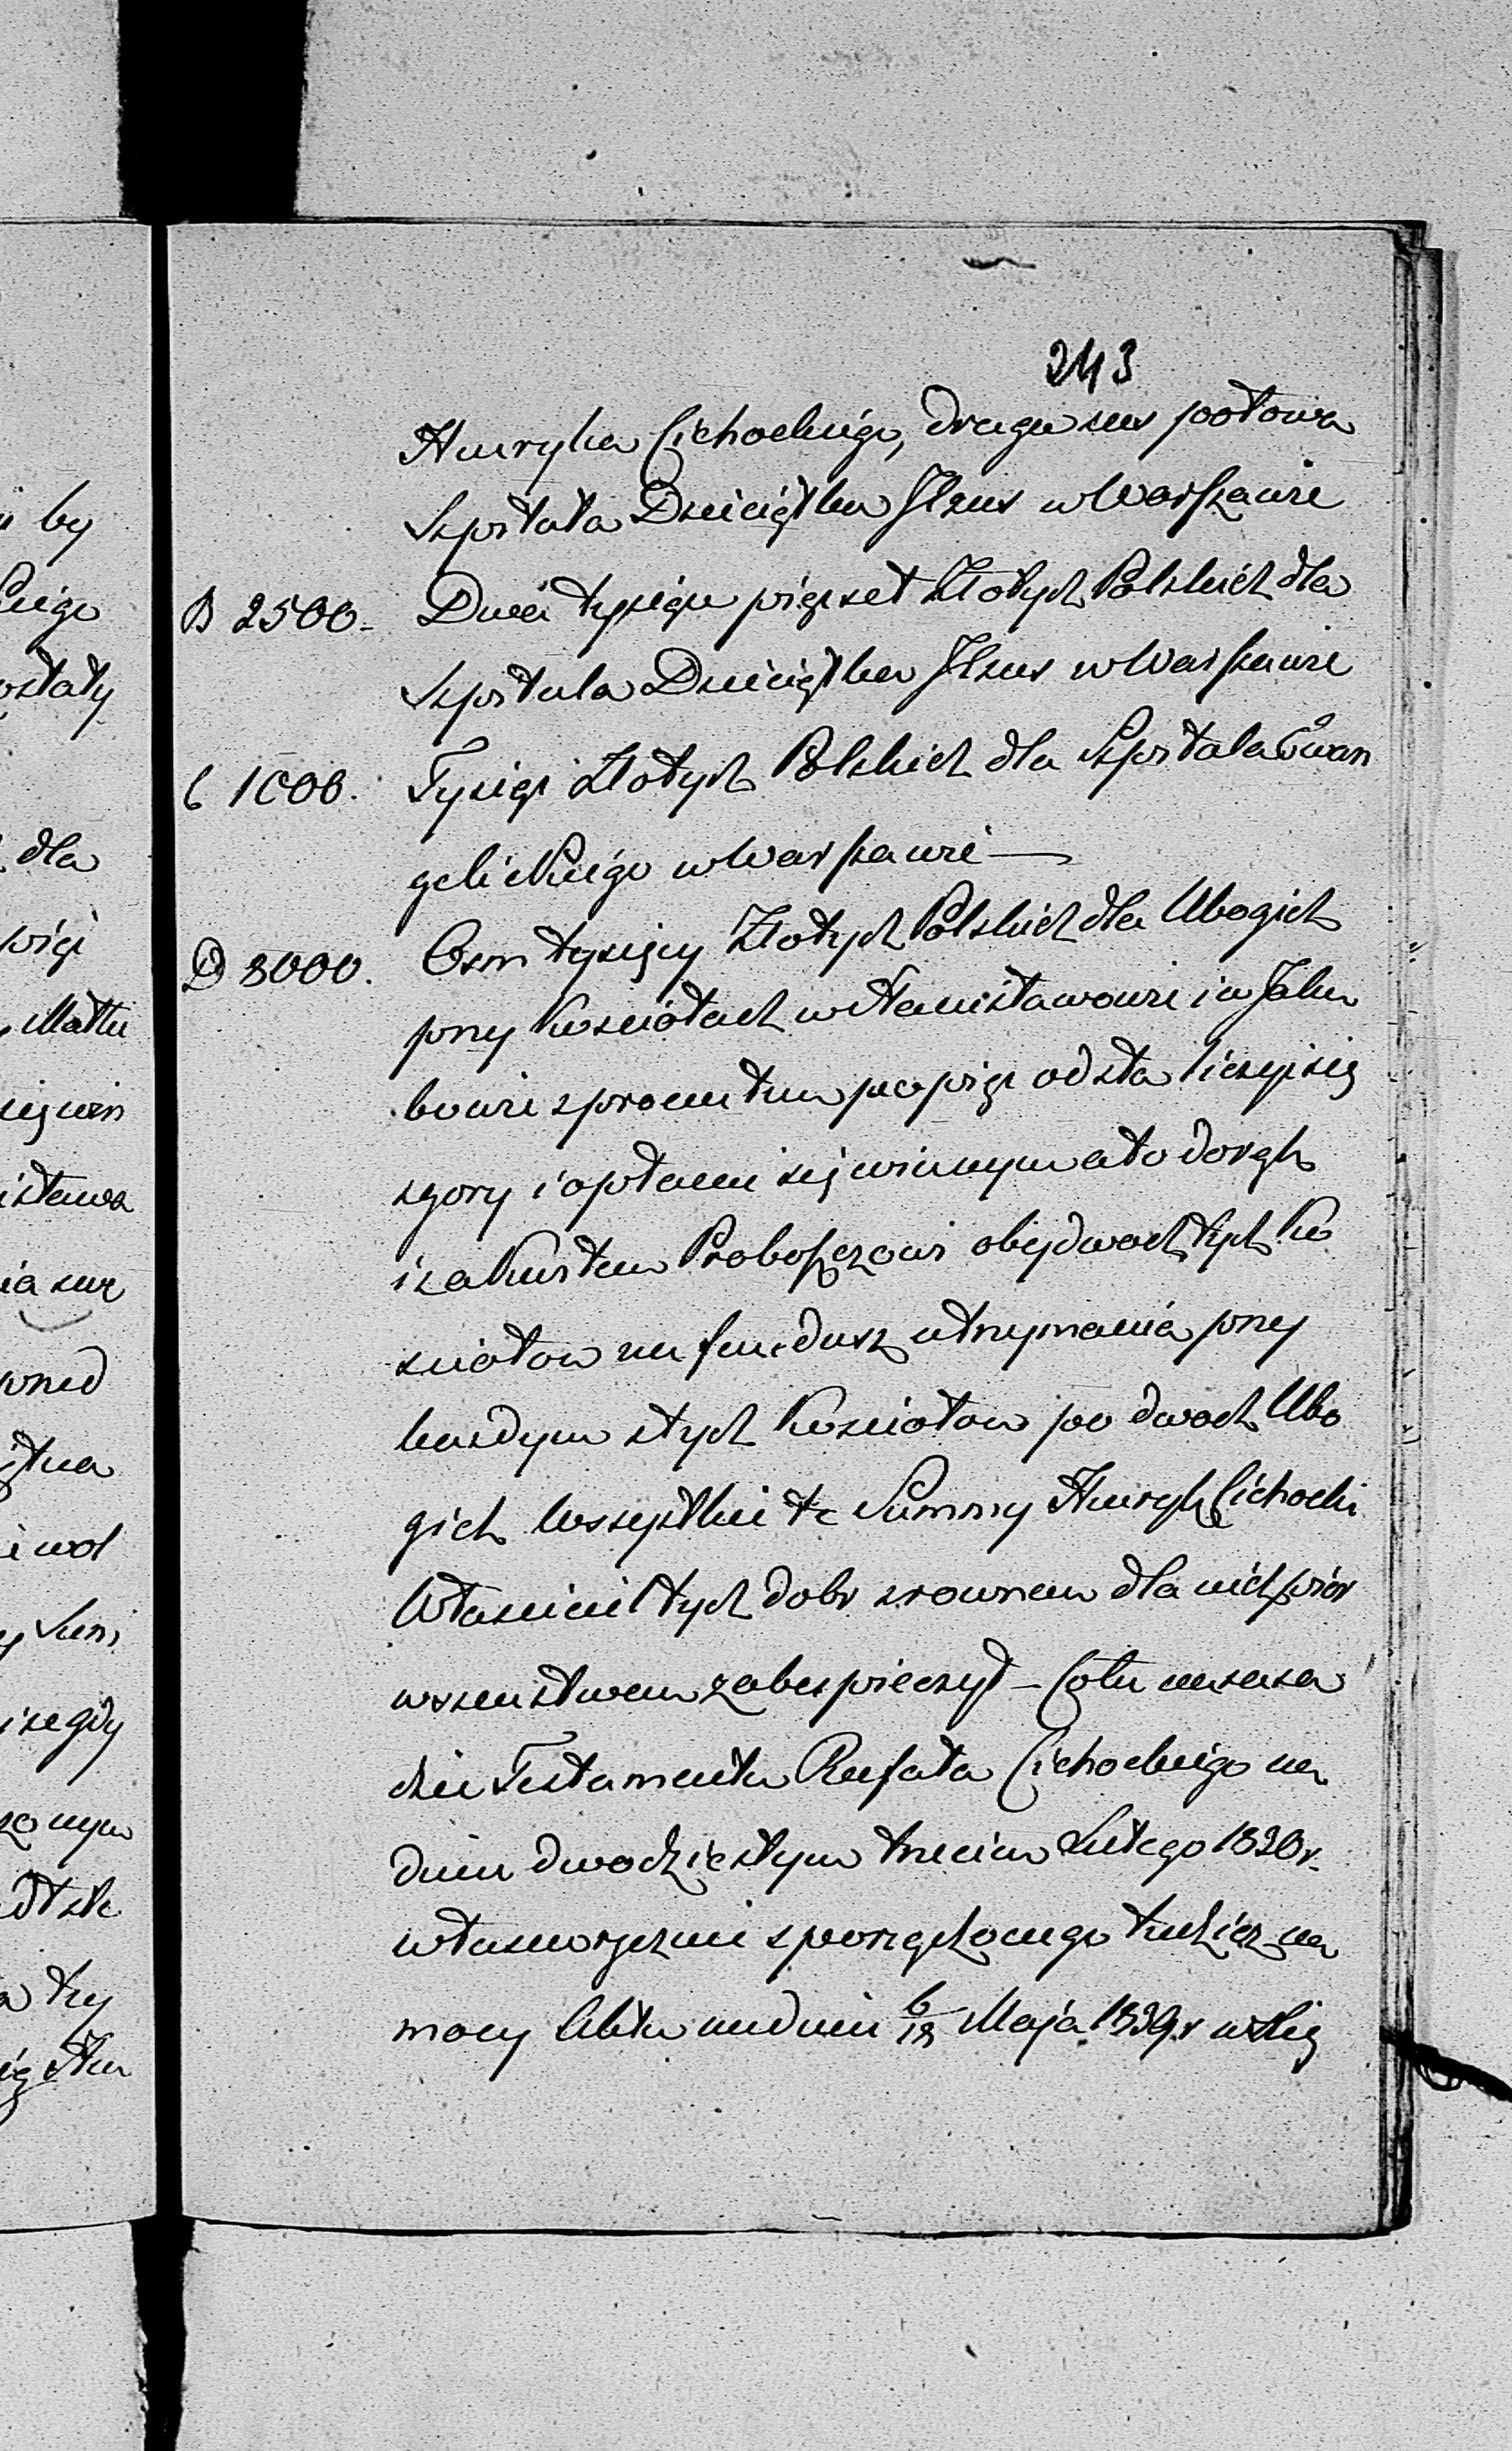 243
Henryka Cichockiego, druga zas połowa
Szpitala Dzieciątka JEzus w Warszawie
B 2500. Dwa tysiące pięćset Złotych Polskich dla
Szpitala Dzieciątka JEzus w Warszawie
C 1000. Tysiąc Złotych Polskich dla Szpitala Ewan
gelickiego w Warszawie —
D 8000. Osm tysięcy Złotych Polskich dla Ubogich
przy Kosciołach w Stanisławowie i w Jaku
bowie z procentem po pięć od sta liczyć się
z gory i opłacać się winnym a to do rąk
i za kwitem Proboszczowi obydwoch tych Ko
sciołow na fundusz utrzymania przy
kazdym z tych Kosciołow po dwoch Ubo
gich Wszystkie te Summy Henryk Cichocki
Własciciel tych dobr z rownem dla nich pier
wszenstwem zabespieczył – Co tu na zasa
dzie Testamentu Rafała Cichockiego na
dniu dwodziestym trzecim Lutego 1830 r.
własnoręcznie sporządzonego tudzież na
mocy Aktu na dniu 6/18 Maja 1839. r w Xię
by
kiego
ostały
dla
pięć
istawa
przed
i wol
i ze gdy